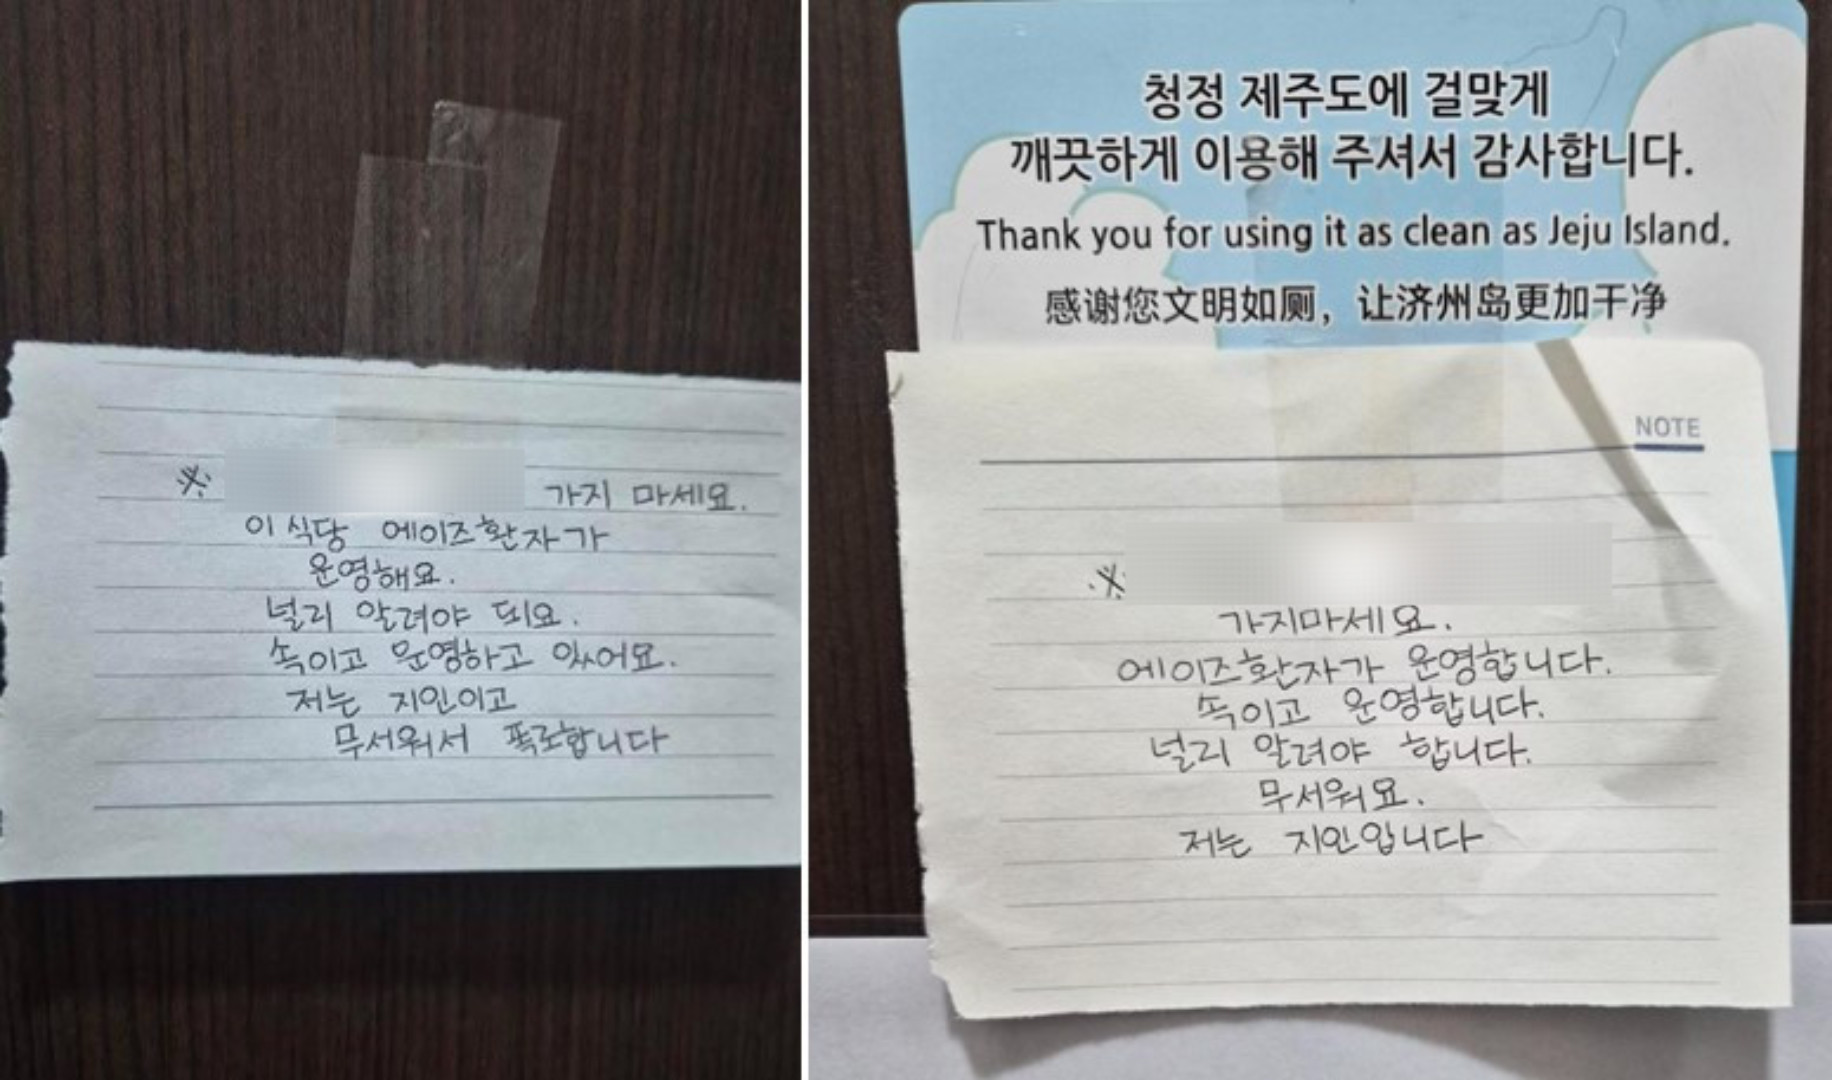 ※ 가지 마세요.
이 식당 에이즈환자가
운영해요.
널리 알려야 되요.
속이고 운영하고 있어요.
저는 지인이고
무서워서 폭로합니다
청정 제주도에 걸맞게
깨끗하게 이용해 주셔서 감사합니다.
Thank you for using it as clean as Jeju Island.
感谢您文明如厕，让济州岛更加干净
NOTE
※
가지마세요.
에이즈환자가 운영합니다.
속이고 운영합니다.
널리 알려야 합니다.
무서워요.
저는 지인입니다